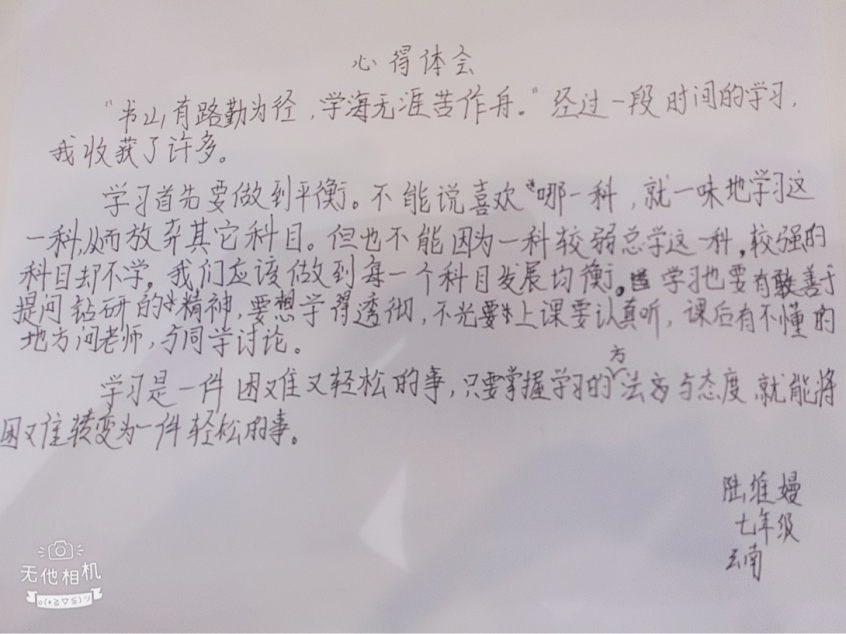 心得体会
“书山有路勤为径，学海无涯苦作舟。”经过一段时间的学习，
我收获了许多。
学习首先要做到平衡。不能说喜欢哪一科，就一味地学习这
一科，从而放弃其它科目。但也不能因为一科较弱总学这一科，较强的
科目却不学。我们应该做到每一个科目发展均衡。学习也要有敢善于
提问钻研的精神，要想学得透彻，不光要上课要认真听，课后有不懂的
地方问老师，与同学讨论。
学习是一件困难又轻松的事，只要掌握学习的方法与态度，就能将
困难转变为一件轻松的事。
陆维嫚
七年级
云南
无他相机